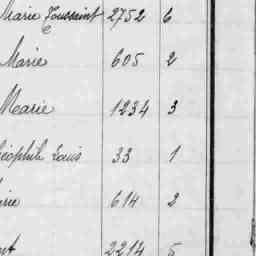 Marie Toussaint 2752 6
Marie 605 2
Marie 1234 3
éophile Louis 33 1
rie 614 2
nt 2214 5